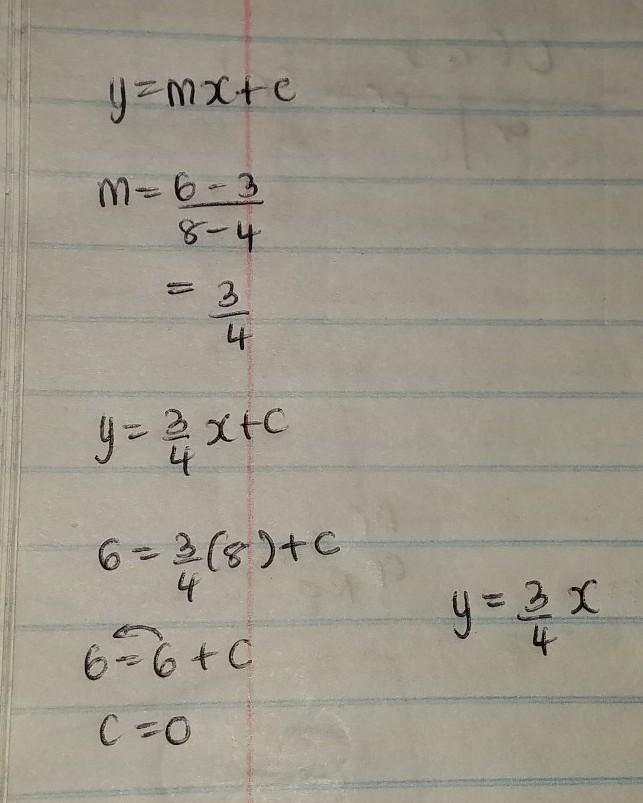 y=mx+c
m= 6-3
8-4
= 3
4
y= 3/4 x+c
6= 3/4 (8)+c
6=6+c
c=0
y= 3/4 x